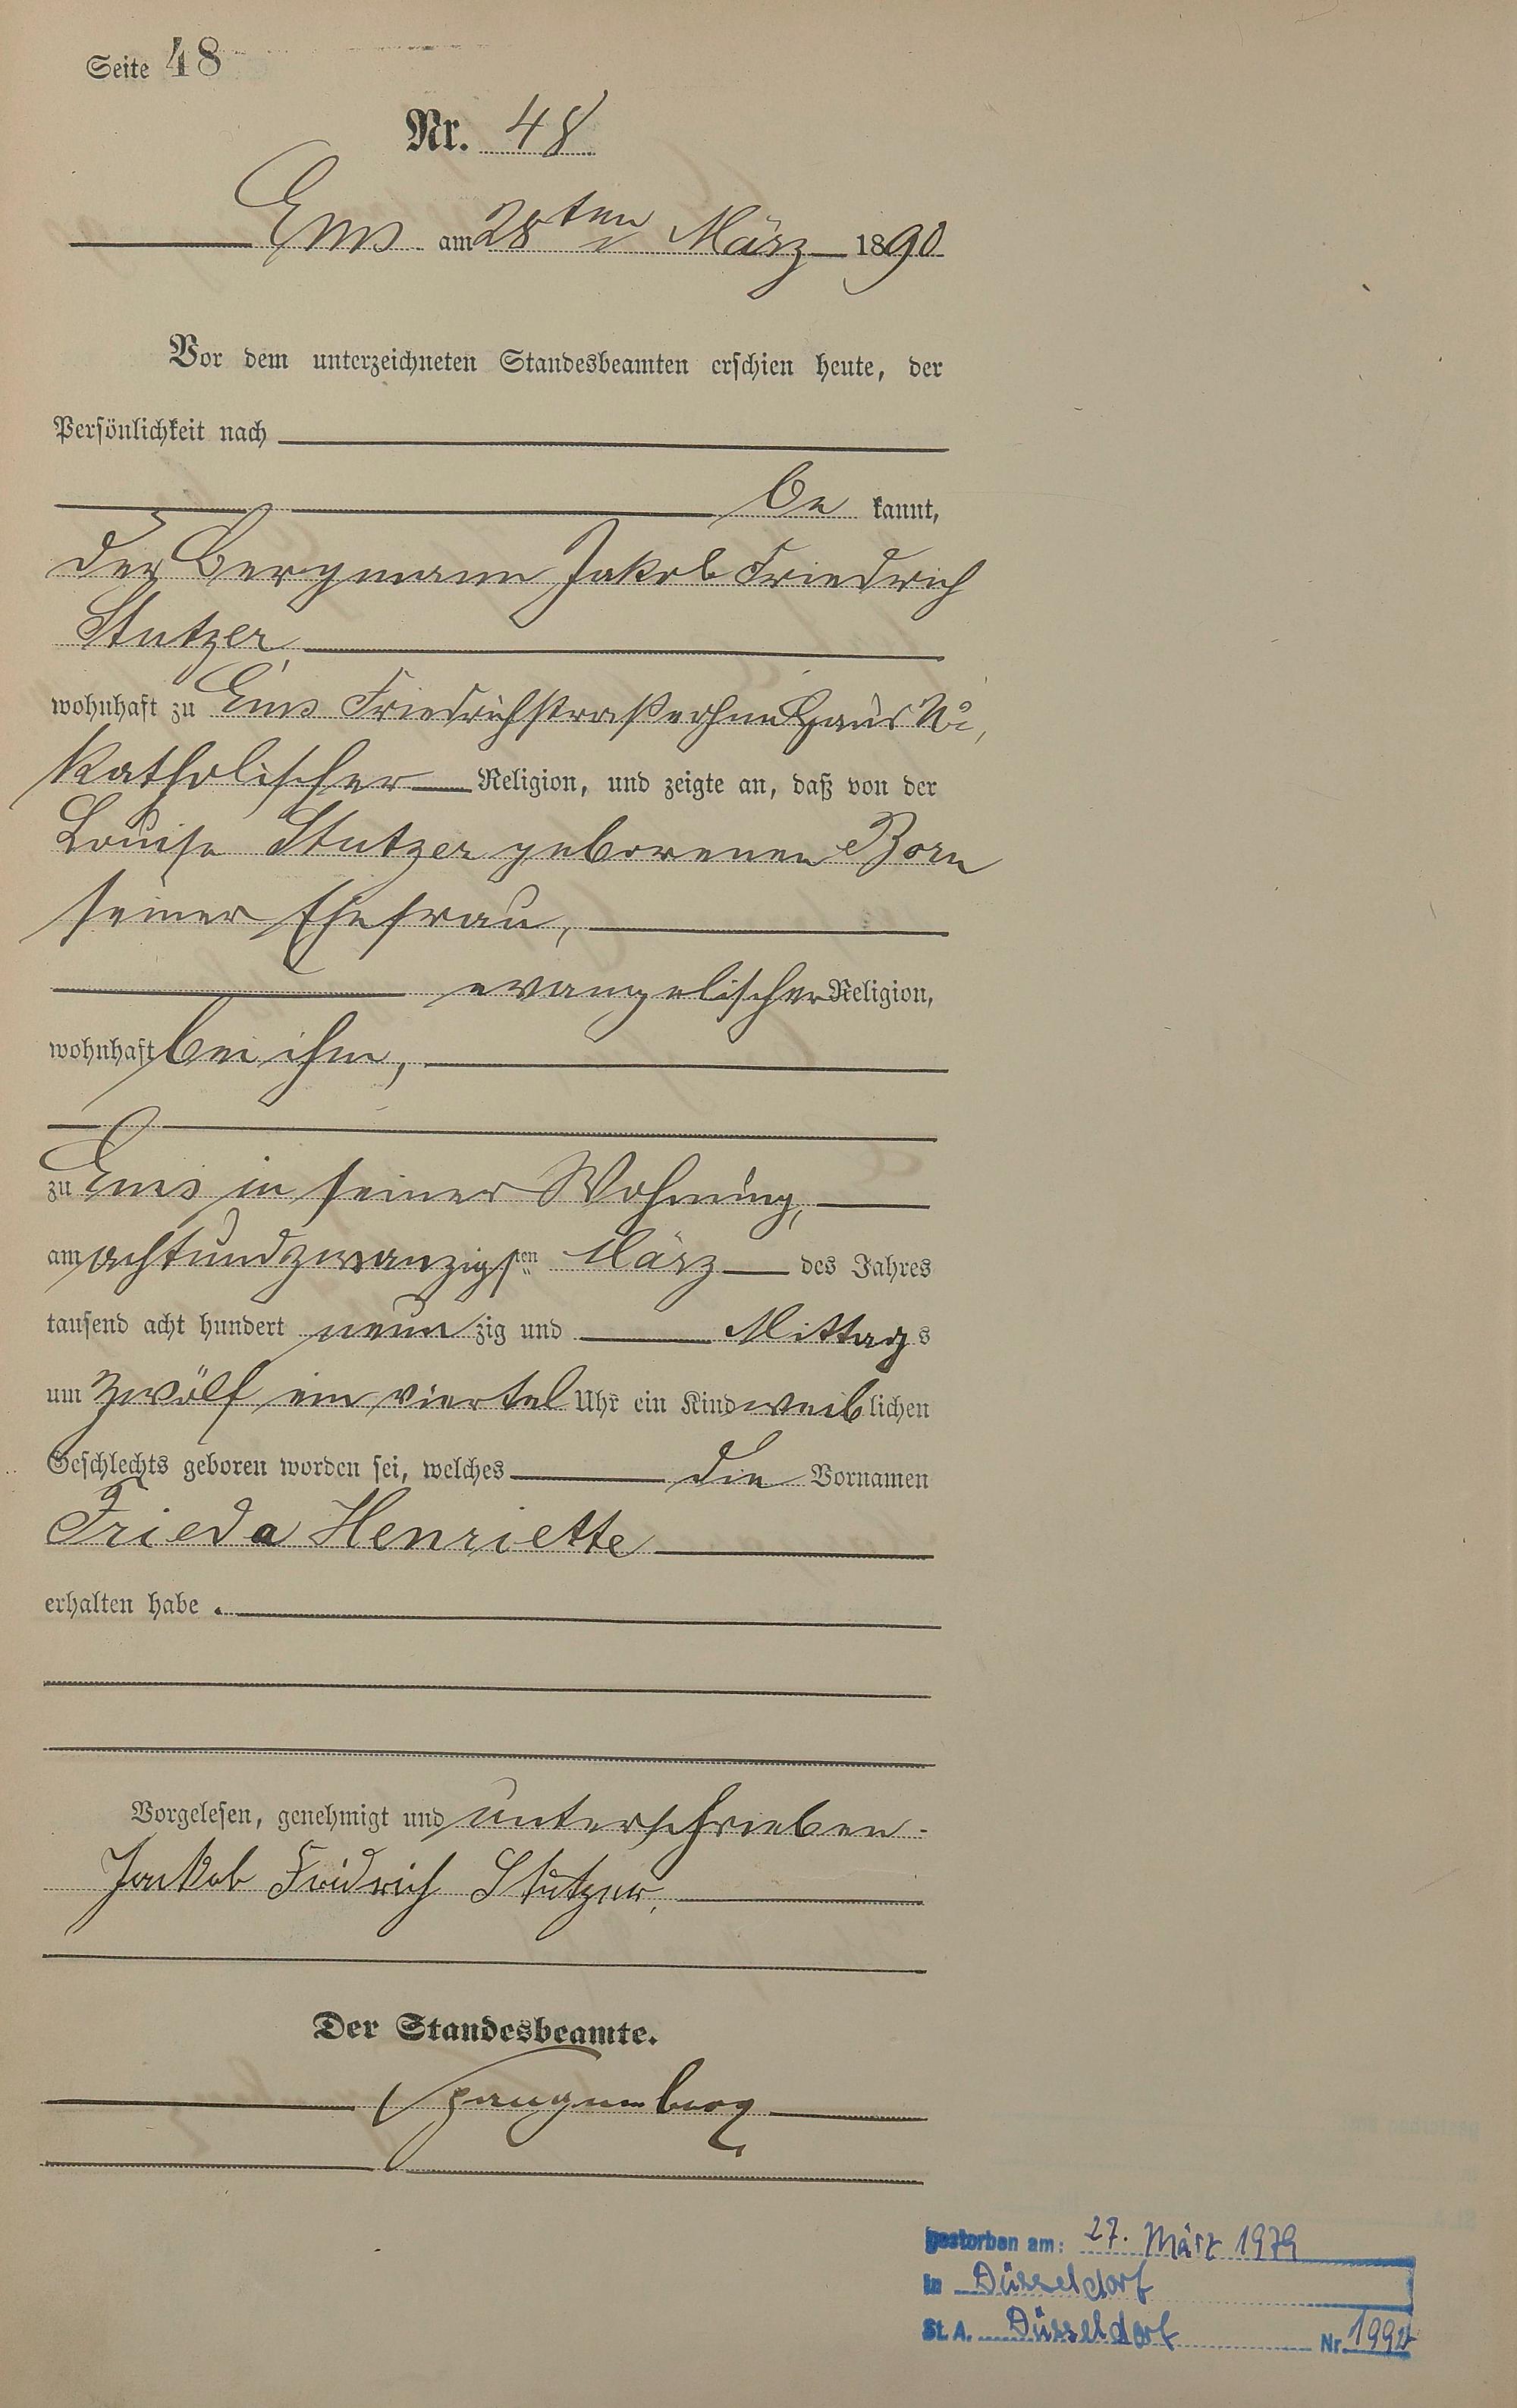 Seite 48
Nr. 48
Ems am 28ten März 1890
Vor dem unterzeichneten Standesbeamten erschien heute, der
Persönlichkeit nach
be kannt,
der Bergmann Jakob Friedrich
Stutzer
wohnhaft zu Ems Friedrichstraße ohne Haus No,
katholischer Religion, und zeigte an, daß von der
Louise Stutzer geborenen Born
seiner Ehefrau,
evangelischer Religion,
wohnhaft bei ihm,
zu Ems in seiner Wohnung,
am achtundzwanzigsten März des Jahres
tausend acht hundert neun zig und Mittags
um zwölf ein viertel Uhr ein Kind weiblichen
Geschlechts geboren worden sei, welches die Vornamen
Frieda Henriette
erhalten habe.
Vorgelesen, genehmigt und unterschrieben.
Jackob Fridrich Stutzer,
Der Standesbeamte.
Spangenberg
gestorben am: 27. März 1979
in Düsseldorf
St. A. Düsseldorf Nr.